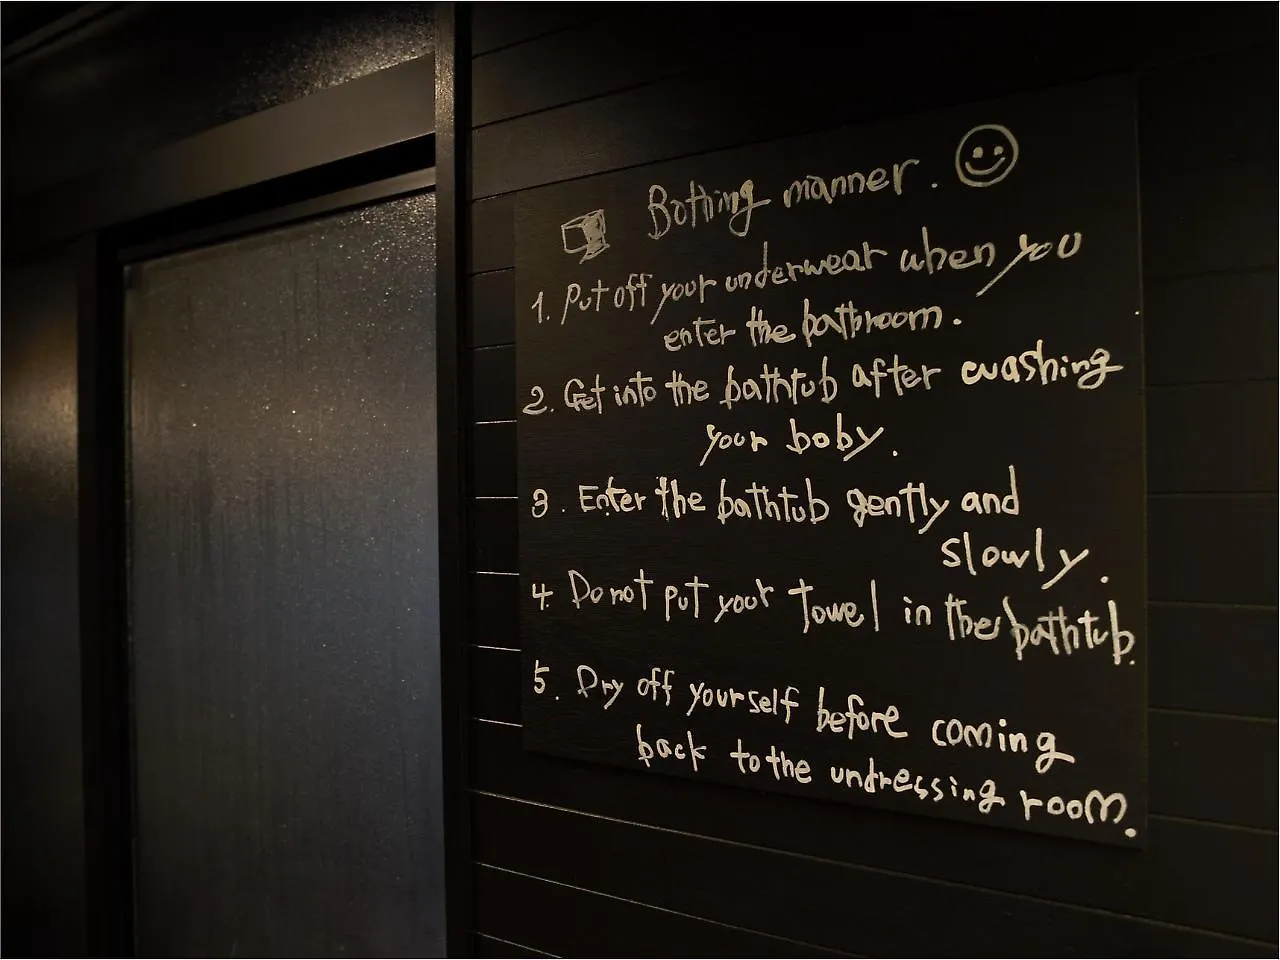 Bathing manner.
1. Put off your underwear when you
enter the bathroom.
2. Get into the bathtub after washing
your boby.
3. Enter the bathtub gently and
slowly.
4. Do not put your towel in the bathtub.
5. Dry off yourself before coming
back to the undressing room.